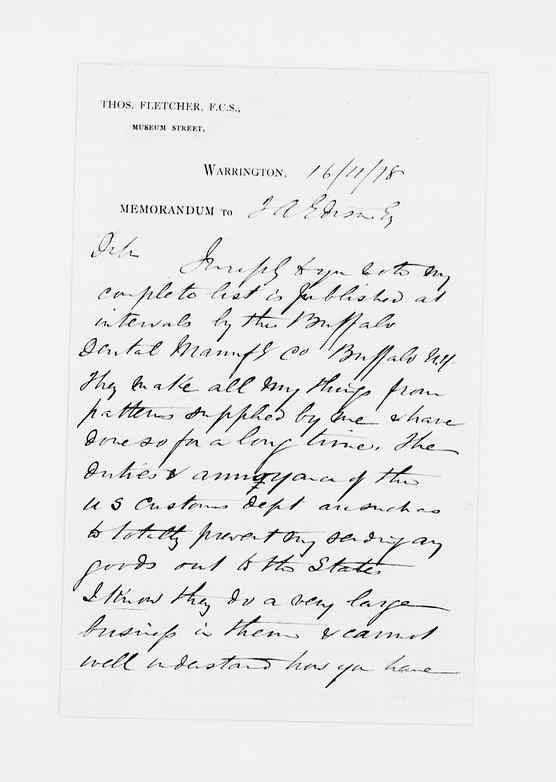 THOS. FLETCHER, F.C.S.,
MUSEUM STREET,
WARRINGTON, 16/11/78
MEMORANDUM TO T A Edison Esq
Dr Sir
my
complete list is published at
intervals by the Buffalo
Dental Manuf'g Co Buffalo N.Y.
They make all my things from
patterns supplied by me & have
done so for a long time. The
duties & annoyance of the
U S Customs dept are such as
to totally prevent my sending any
goods out to the States
I know they do a very large
business in them & cannot
well understand how you have